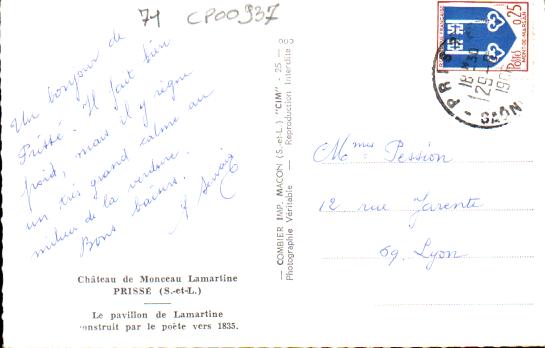 71 CP00937
Un bonjour de
Prissé. Il fait bien
froid, mais il y règne
un très grand calme au
milieu de la verdure.
Bons baisers.
Château de Monceau Lamartine
PRISSÉ (S.-et-L.)
Le pavillon de Lamartine
construit par le poète vers 1835.
— COMBIER IMP. MACON (S.-et-L.) "CIM" - 25 -
Photographie Véritable — Reproduction Interdite
0,25
Postes
MONT-DE-MARSAN
PRISSÉ
18H30
29
19
SAÔN
Mmes Pession
12 rue Jarente
69. Lyon